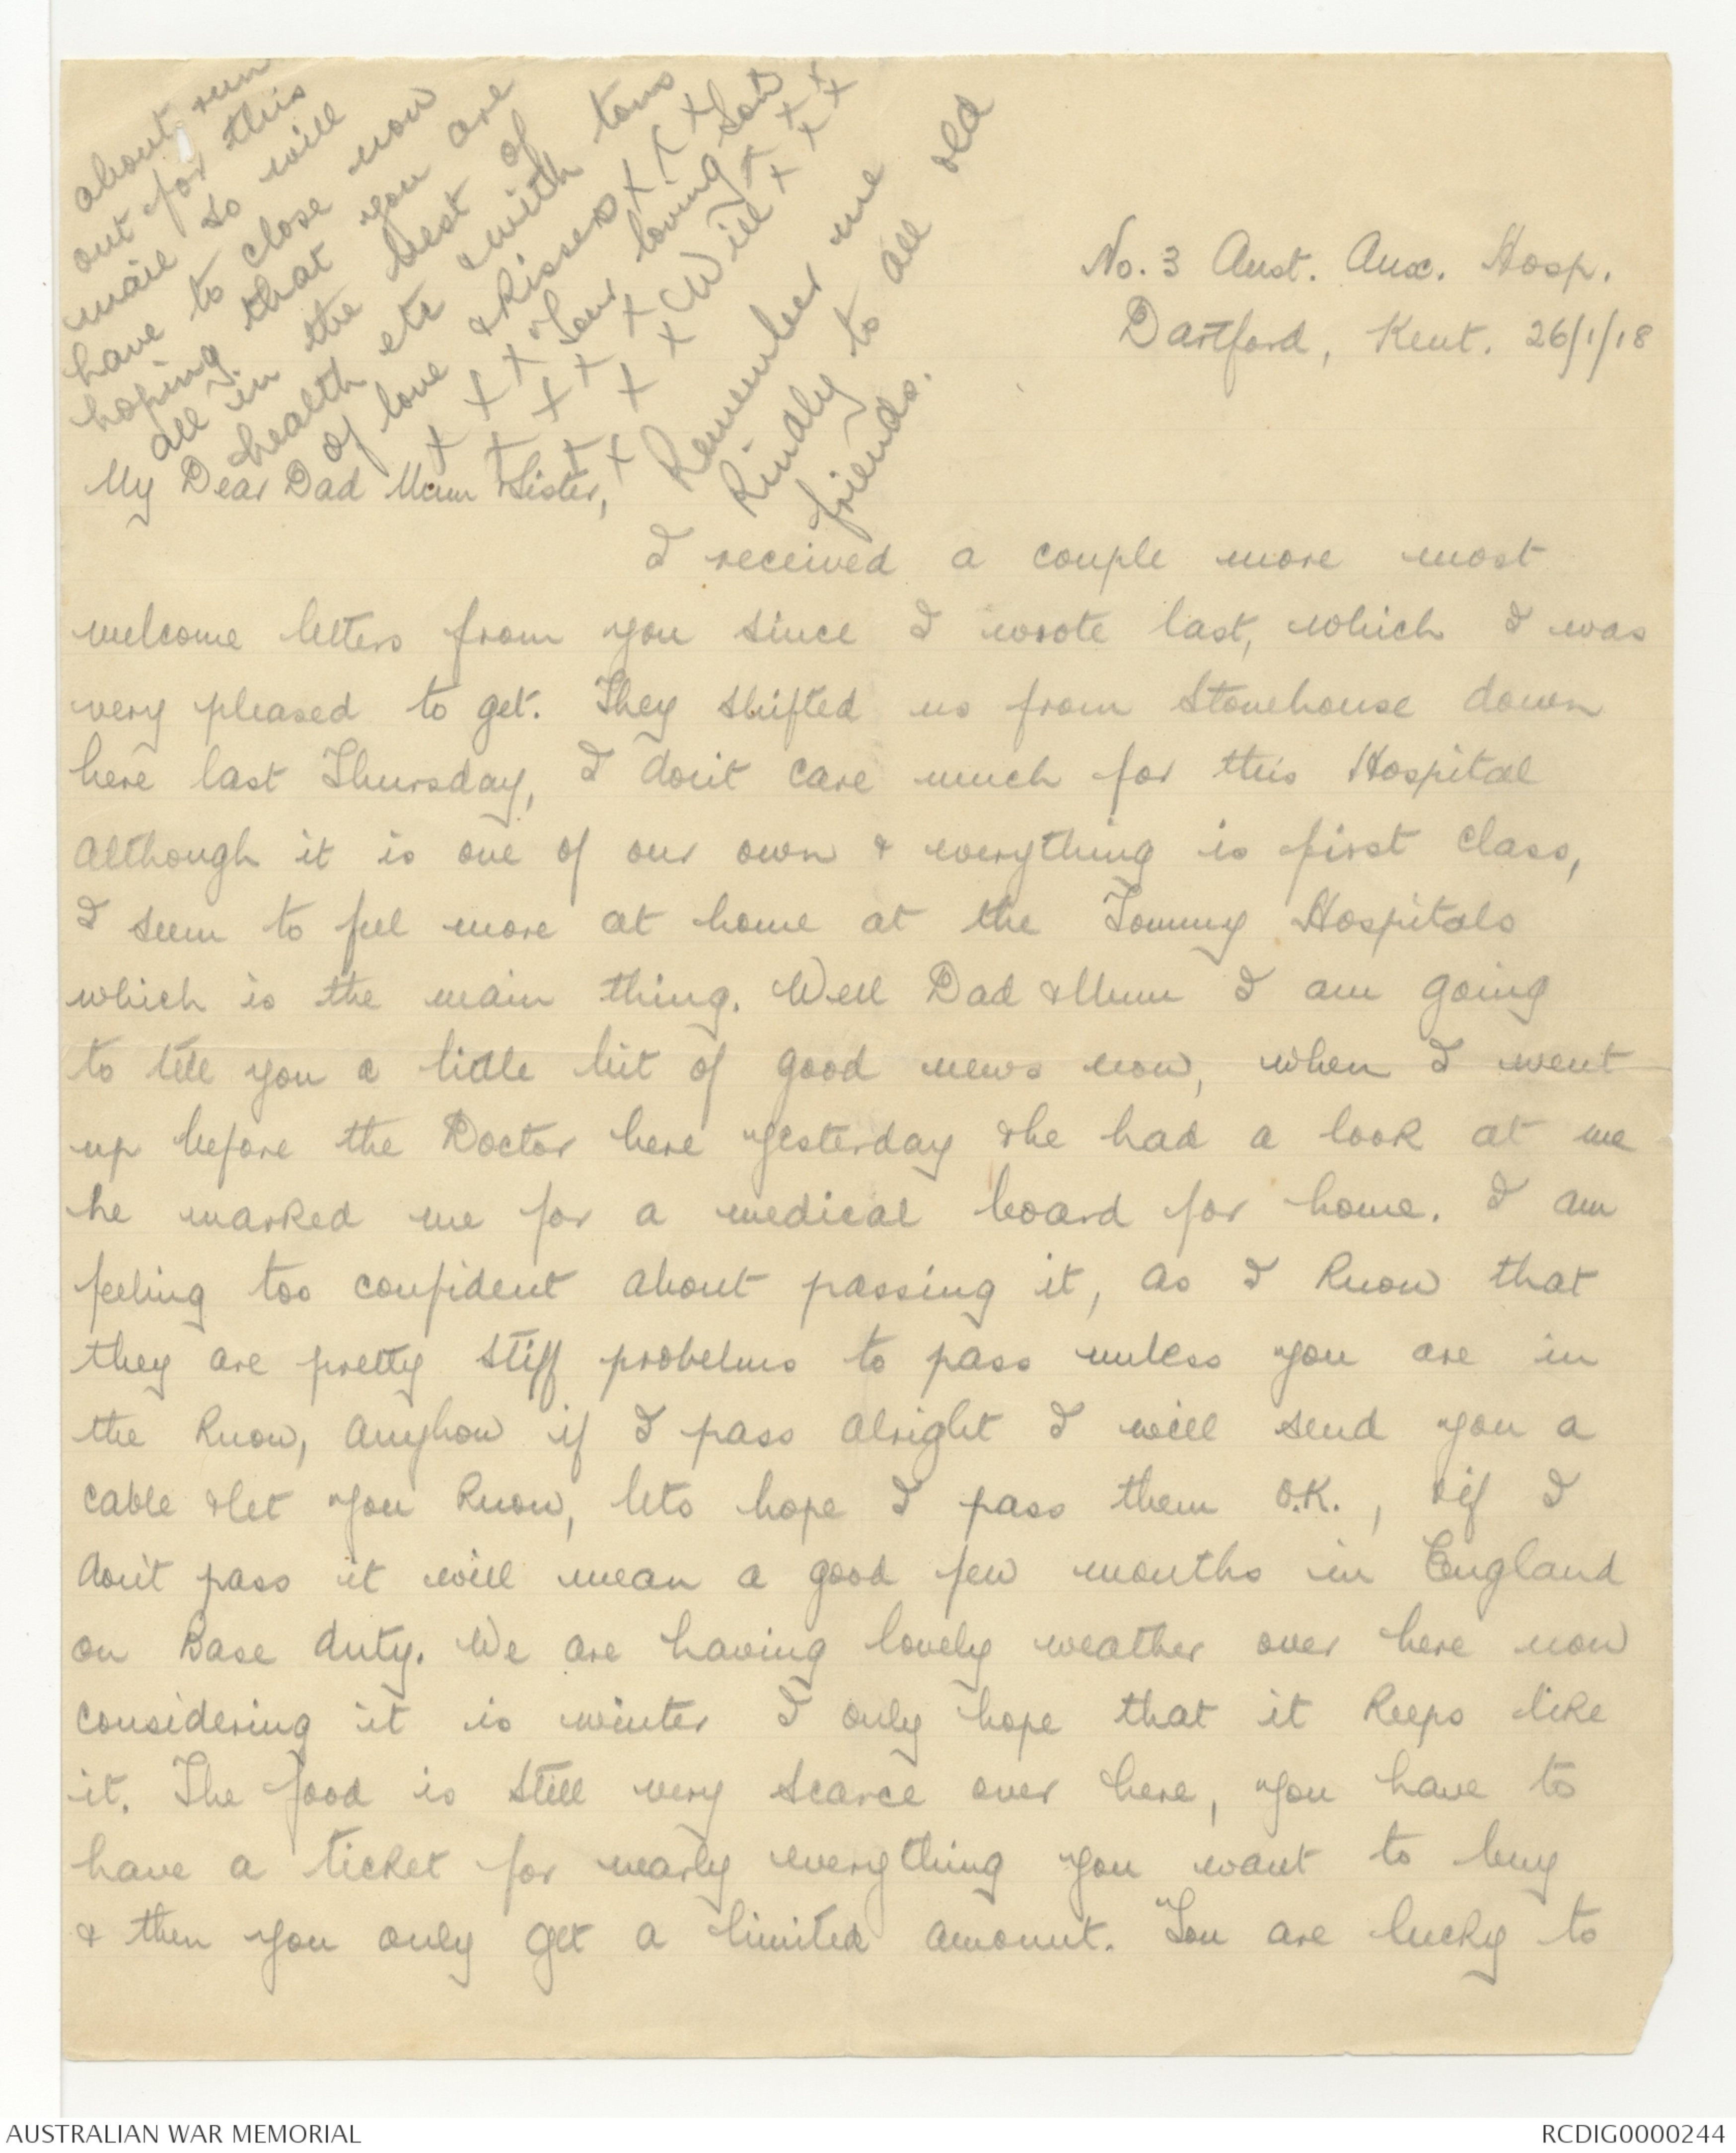 about run
out for this
mail so will
have to close now
hoping that you are
all in the best of
health etc & with tons
of love & kisses x x x
x x x Your loving Son
x x x x Will x x x x x
x x x x
Remember me
kindly to all old
friends.
No. 3 Aust. Aux. Hosp.
Dartford, Kent. 26/1/18
My Dear Dad Mum & Sister,
I received a couple more most
welcome letters from you since I wrote last, which I was
very pleased to get. They shifted us from Stonehouse down
here last Thursday, I don't care much for this Hospital
although it is one of our own & everything is first class,
I seem to feel more at home at the Tommy Hospitals
which is the main thing. Well Dad & Mum I am going
to tell you a little bit of good news now, when I went
up before the Doctor here yesterday & he had a look at me
he marked me for a medical board for home. I am
feeling too confident about passing it, as I know that
they are pretty stiff probelms to pass unless you are in
the know, anyhow if I pass alright I will send you a
cable & let you know, lets hope I pass them O.K., & if I
don't pass it will mean a good few months in England
on Base duty. We are having lovely weather over here now
considering it is winter I only hope that it keeps like
it. The food is still very scarce over here, you have to
have a ticket for nearly everything you want to buy
& then you only get a limited amount. You are lucky to
AUSTRALIAN WAR MEMORIAL
RCDIG0000244